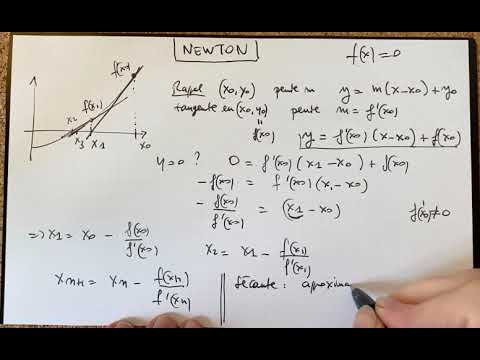 NEWTON
f(x)=0
f(x0)
f(x1)
x2 x3 x1 x0
Rapel (x0,y0) pente m y = m(x-x0)+y0
tangente en (x0,y0) pente m = f'(x0)
"
f(x0)
y = f'(x0)(x-x0)+f(x0)
y=0 ? 0 = f'(x0)(x1-x0)+f(x0)
-f(x0) = f'(x0)(x1-x0)
- f(x0)/f'(x0) = (x1-x0) f'(x0)≠0
=> x1 = x0 - f(x0)/f'(x0) x2 = x1 - f(x1)/f'(x1)
xn+1 = xn - f(xn)/f'(xn)
Sécante : aproxima